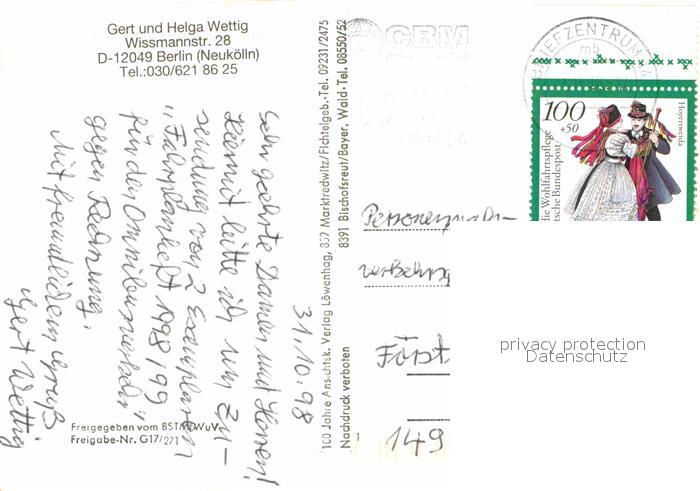 Gert und Helga Wettig
Wissmannstr. 28
D-12049 Berlin (Neukölln)
Tel.:030/621 86 25
31.10.98
Sehr geehrte Damen und Herren!
Hiermit bitte ich um Zu-
sendung von 2 Exemplaren
"Fahrplanheft 1998/99
für den Omnibusverkehr"
gegen Rechnung.
Mit freundlichem Gruß
Gert Wettig
Freigegeben vom BSTMWuV
Freigabe-Nr. G17/271
100 Jahre Ansichtsk. Verlag Löwenhag, 859 Marktredwitz/Fichtelgeb.·Tel. 09231/2475
8391 Bischofsreut/Bayer. Wald·Tel. 08550/52
Nachdruck verboten
1
CBM
BRIEFZENTRUM
mb
100
+50
Hoyerswerda
die Wohlfahrtspflege
tsche Bundespost
Personennah-
verkehrs
Först
149
privacy protection
Datenschutz